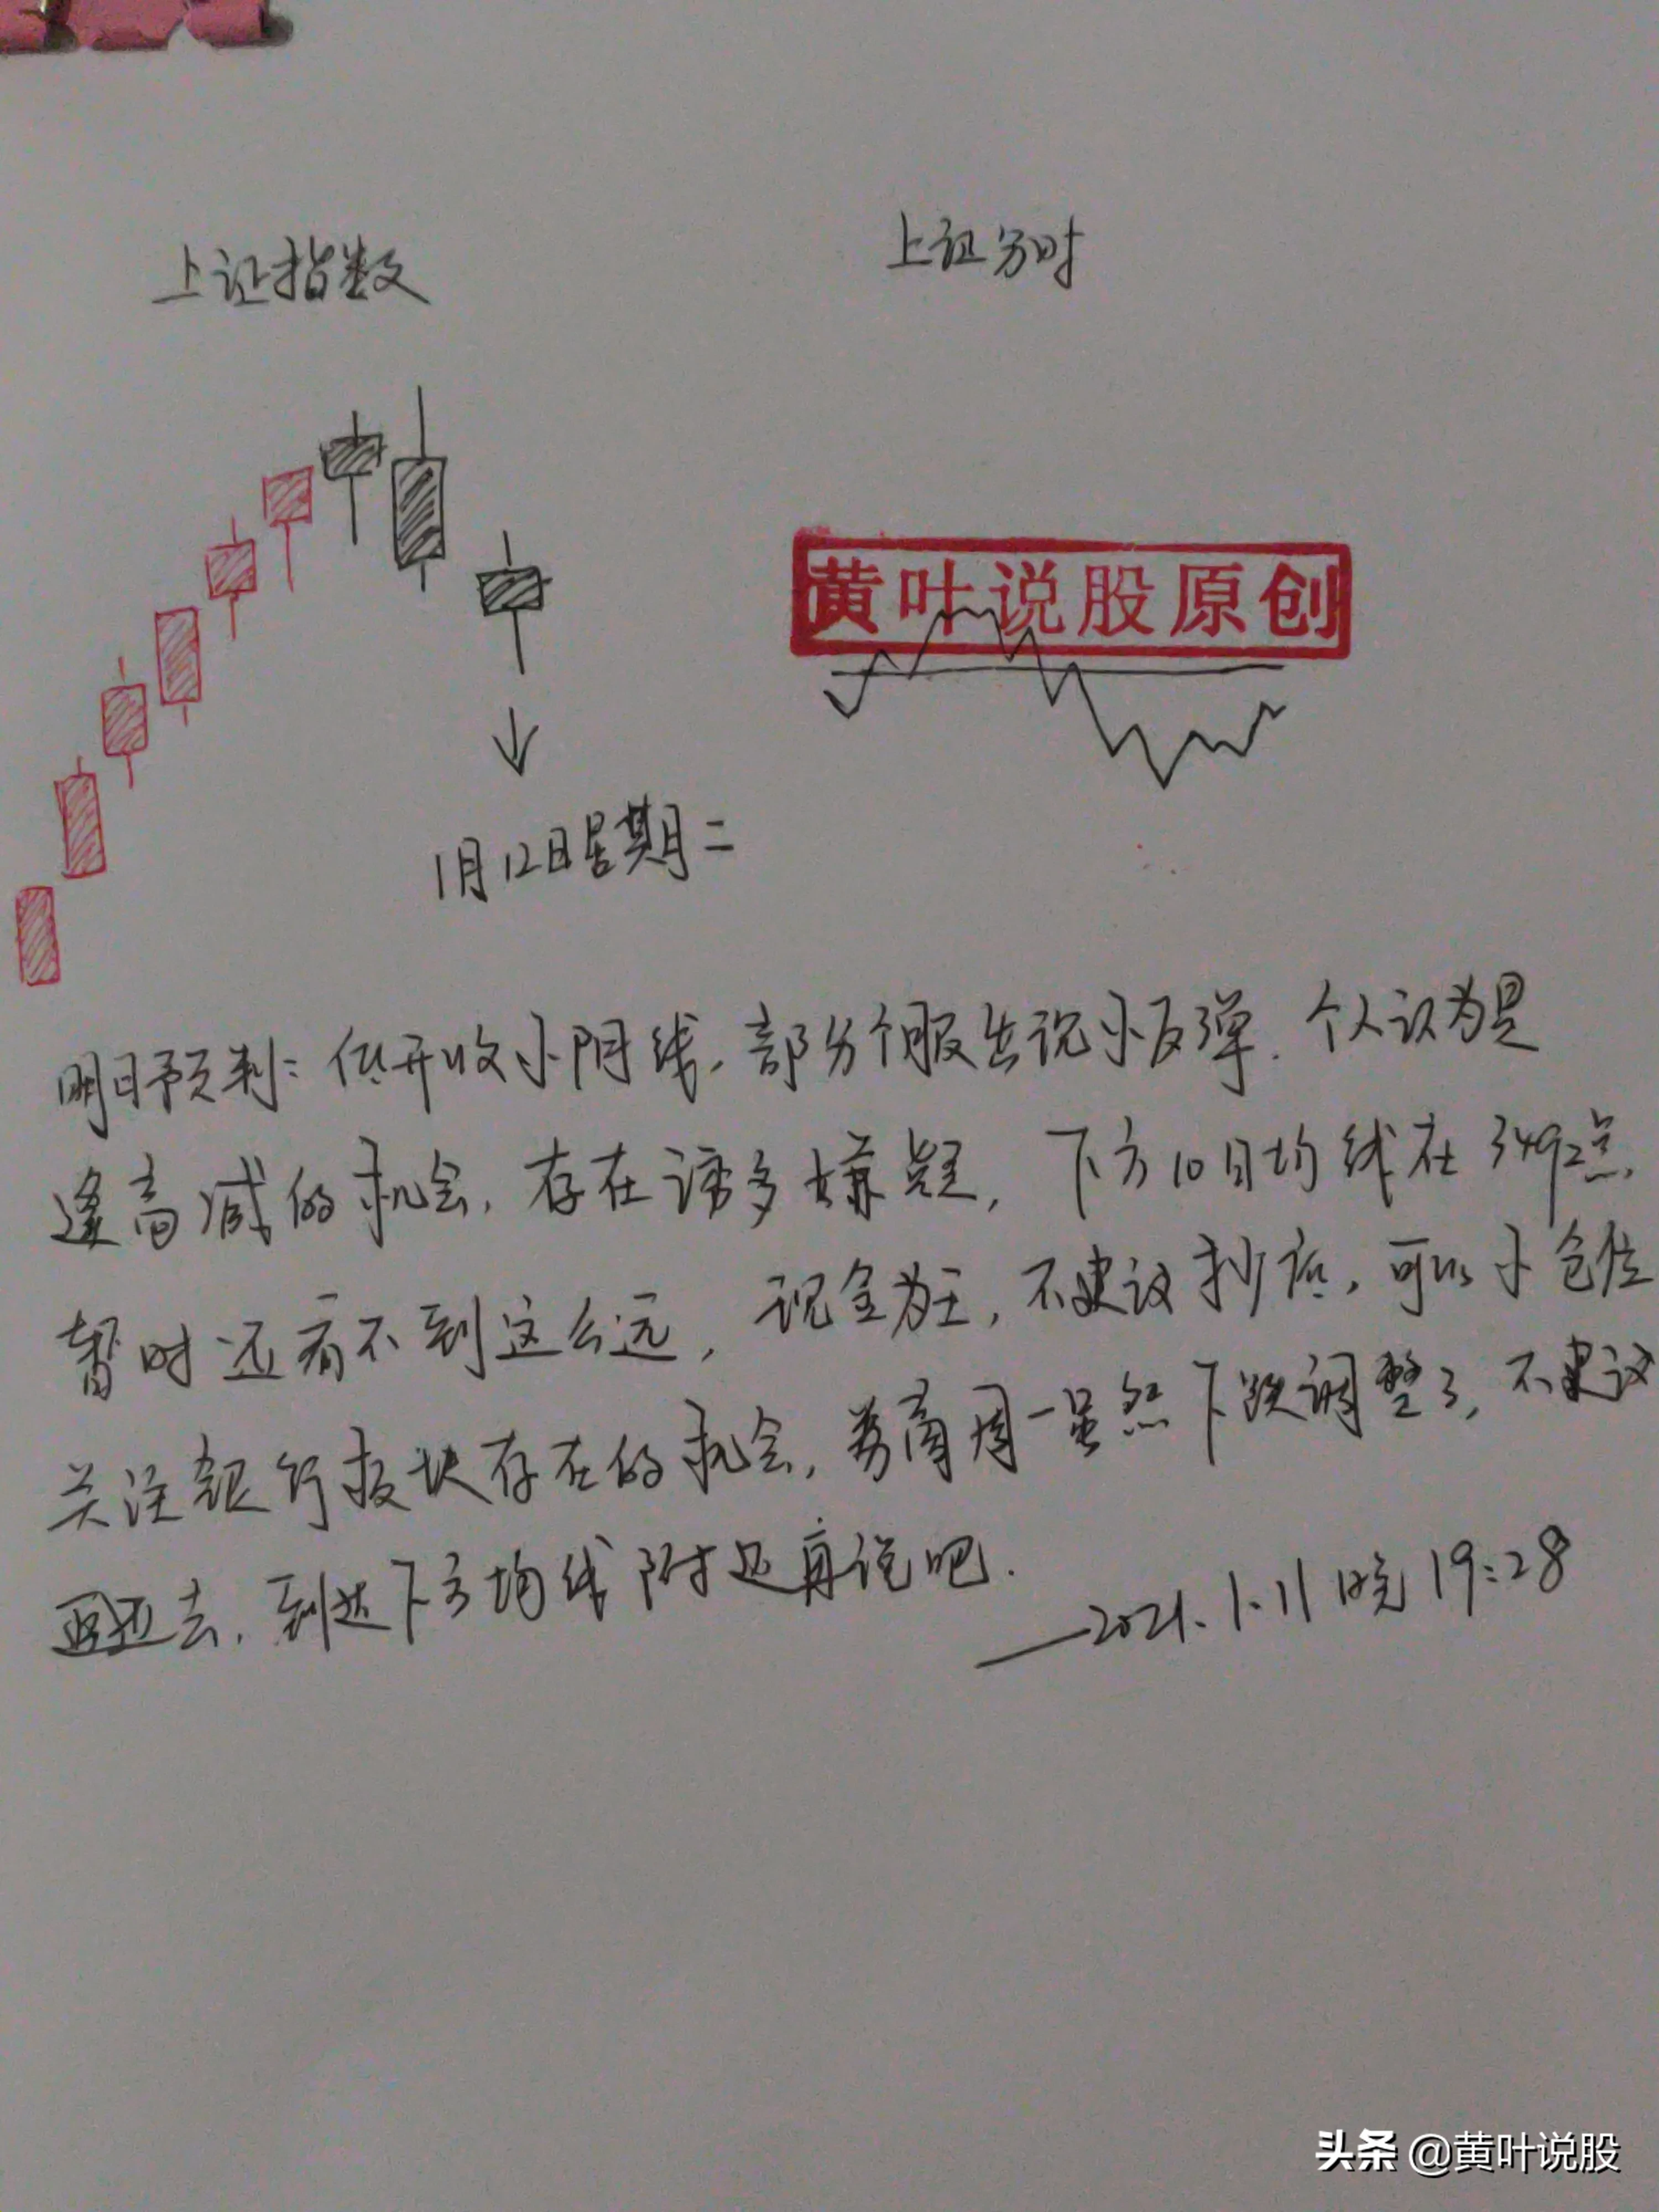 上证指数
上证分时
黄叶说股原创
1月12日星期二
明日预判：低开收小阴线，部分个股出现小反弹，个人认为是
逢高减的机会，存在诱多嫌疑，下方10日均线在3492点，
暂时还看不到这么远，现金为王，不建议抄底，可以小仓位
关注银行板块存在的机会，券商周一虽然下跌调整了，不建议
去，到达下方均线附近再说吧．
——2021.1.11晚19:28
头条 @黄叶说股